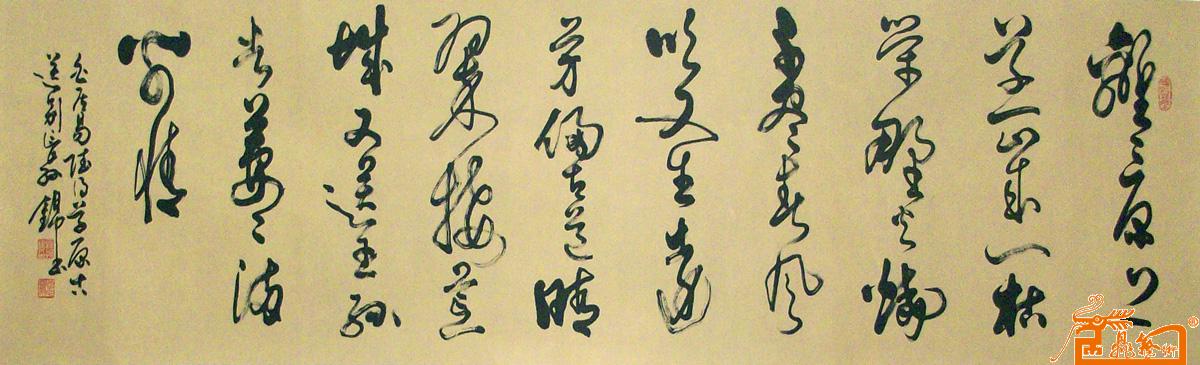 離〻原上
草一歲一枯
榮野火燒
不盡春風
吹又生遠
芳侵古道晴
翠接荒
城又送王孫
去萋〻滿
別情
白居易賦得草原古
送別 錦书